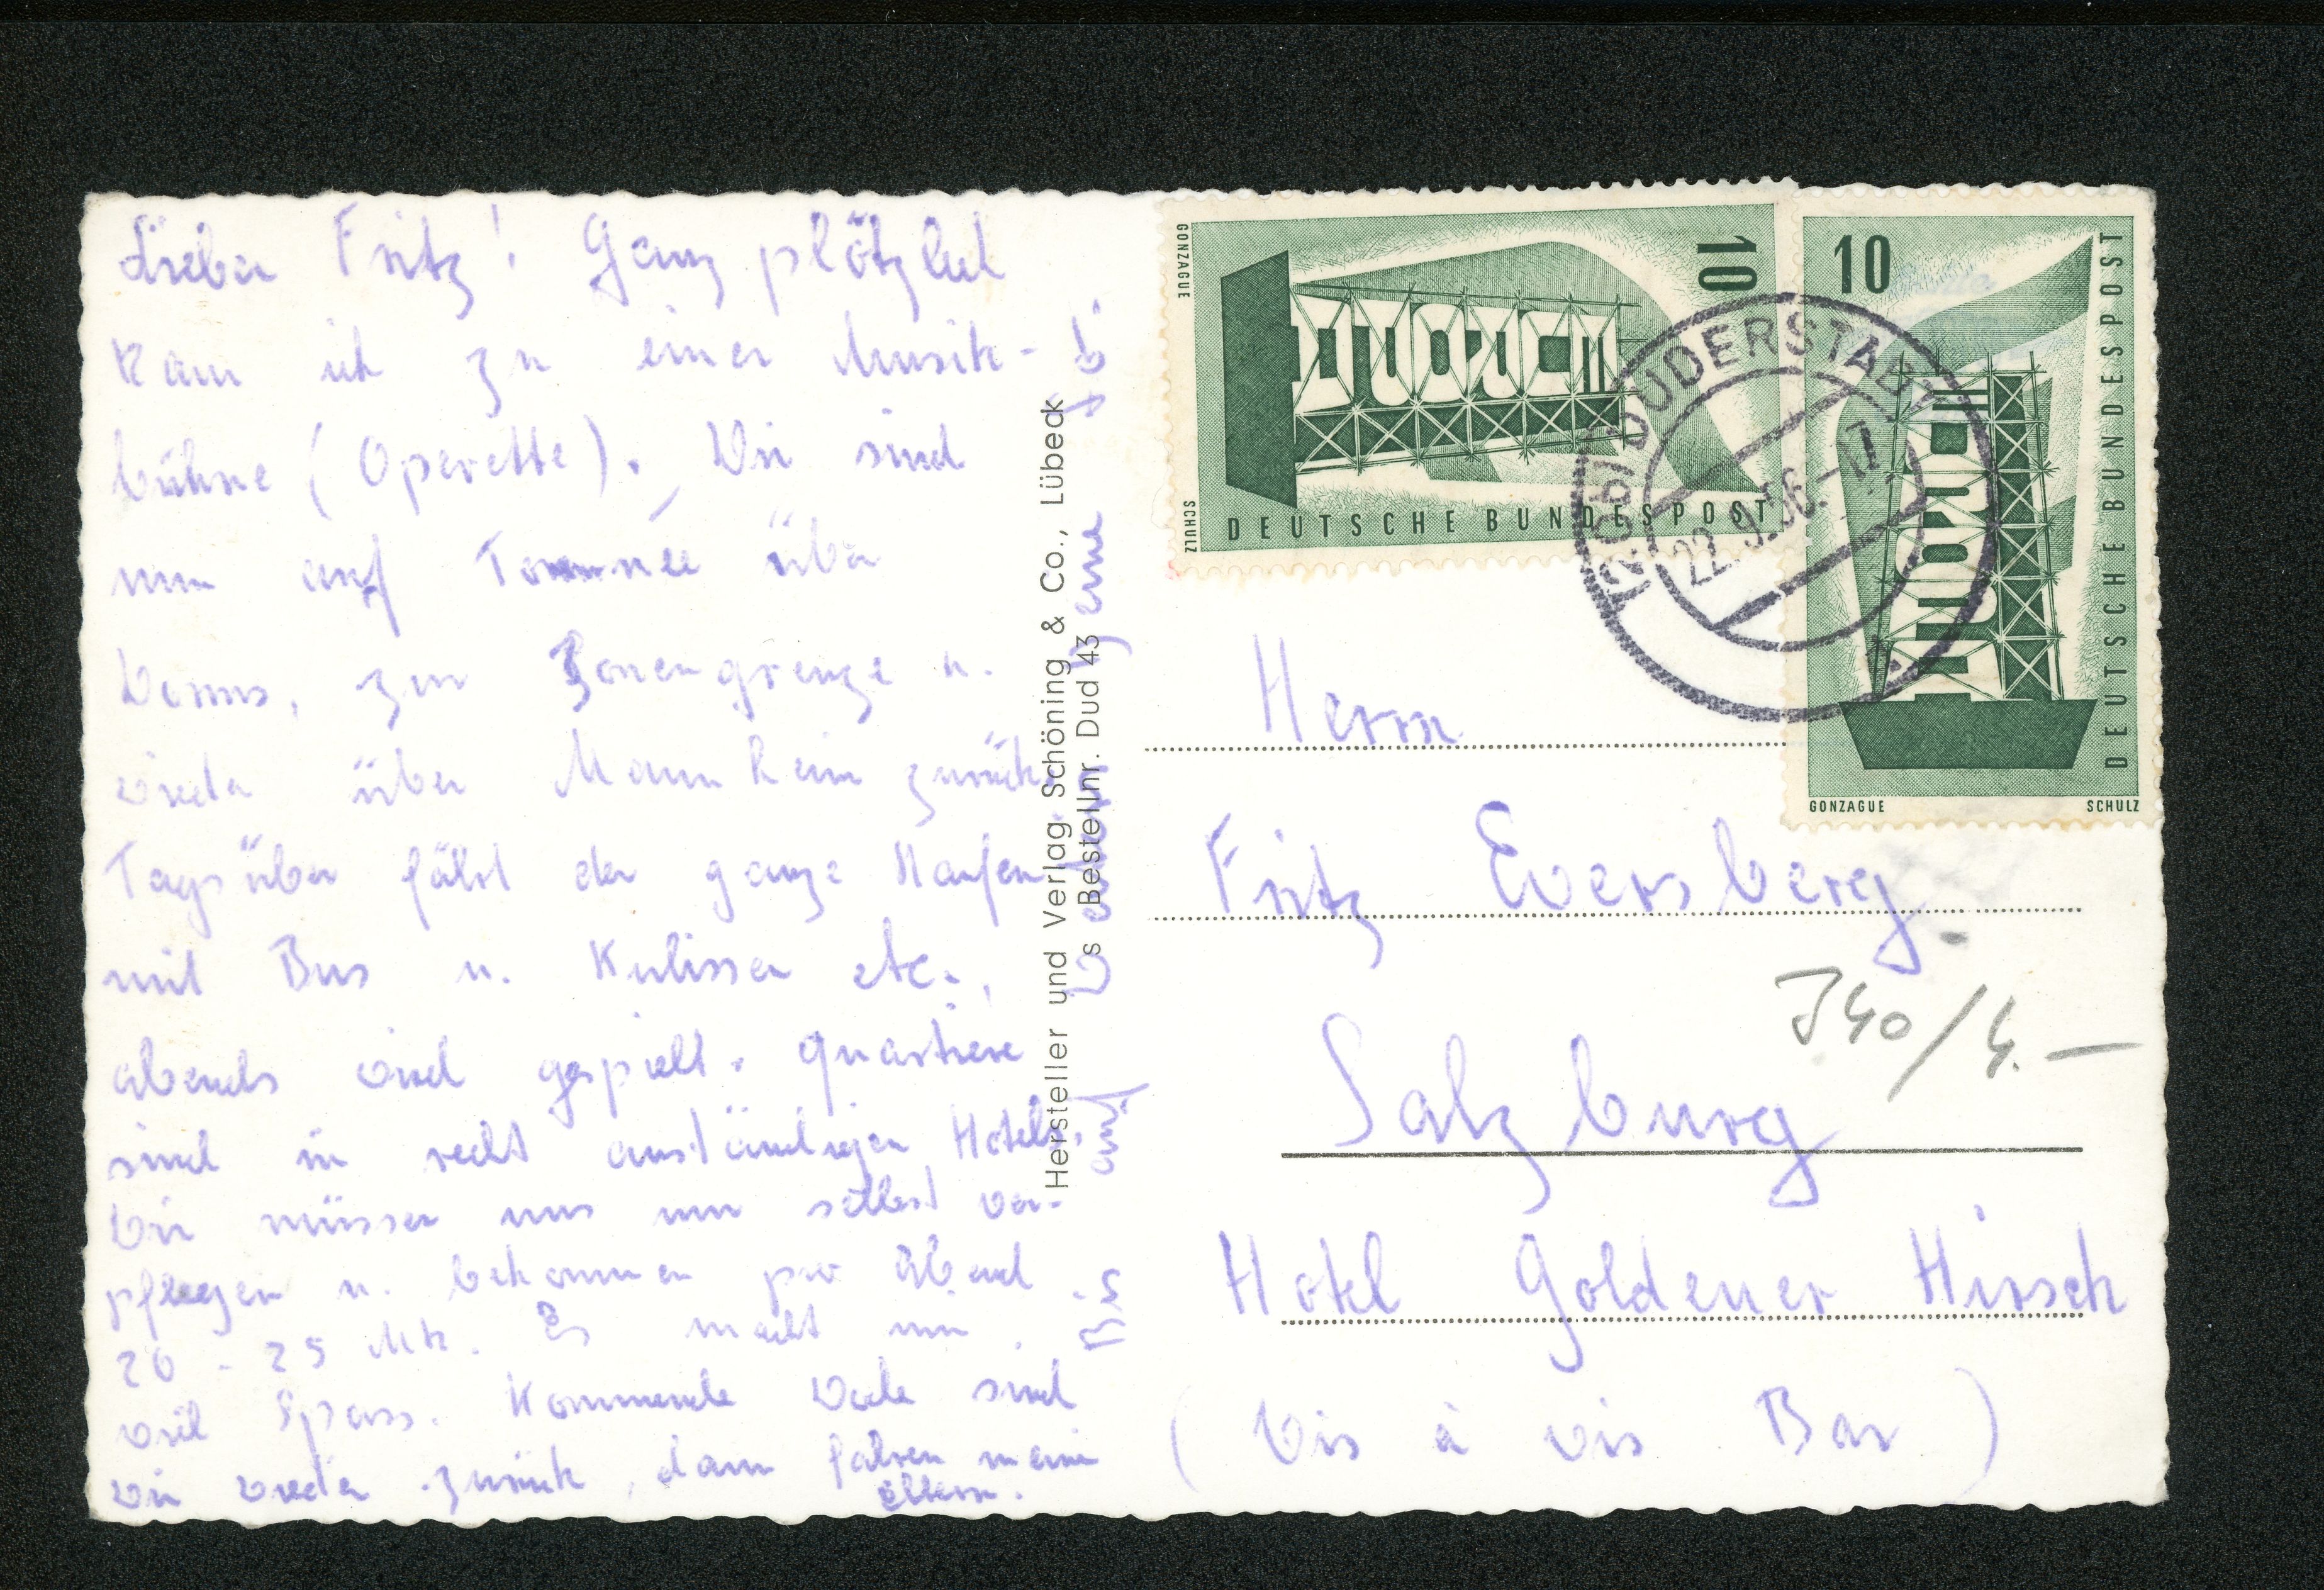 Lieber Fritz! Ganz plötzlich
kam ich zu einer Musik-
bühne (Operette). Wir sind
nun auf Tournée über
Worms, zur Zonengrenze u.
wieder über Mannheim zurück
Tagsüber fährt der ganze Haufen
mit Bus u. Kulissen etc.,
abends wird gespielt. Quartiere
sind in recht anständigen Hotels.
Wir müssen uns nur selbst ver-
pflegen u. bekommen pro Abend
20 - 25 Mk. Es macht mir
viel Spass. Kommende Woche sind
wir wieder zurück, dann fahren meine
Eltern.
auf
Deine
Hersteller und Verlag Schöning & Co., Lübeck
s Bestellnr. Dud 43
GONZAGUE
SCHULZ
10
EUROPA
DEUTSCHE BUNDESPOST
10
EUROPA
DEUTSCHE BUNDESPOST
GONZAGUE SCHULZ
(20b) DUDERSTADT
22.9.56.-17
Herrn
Fritz Eversberg
J40/4.—
Salzburg
Hotel Goldener Hirsch
(Vis à vis Bar)